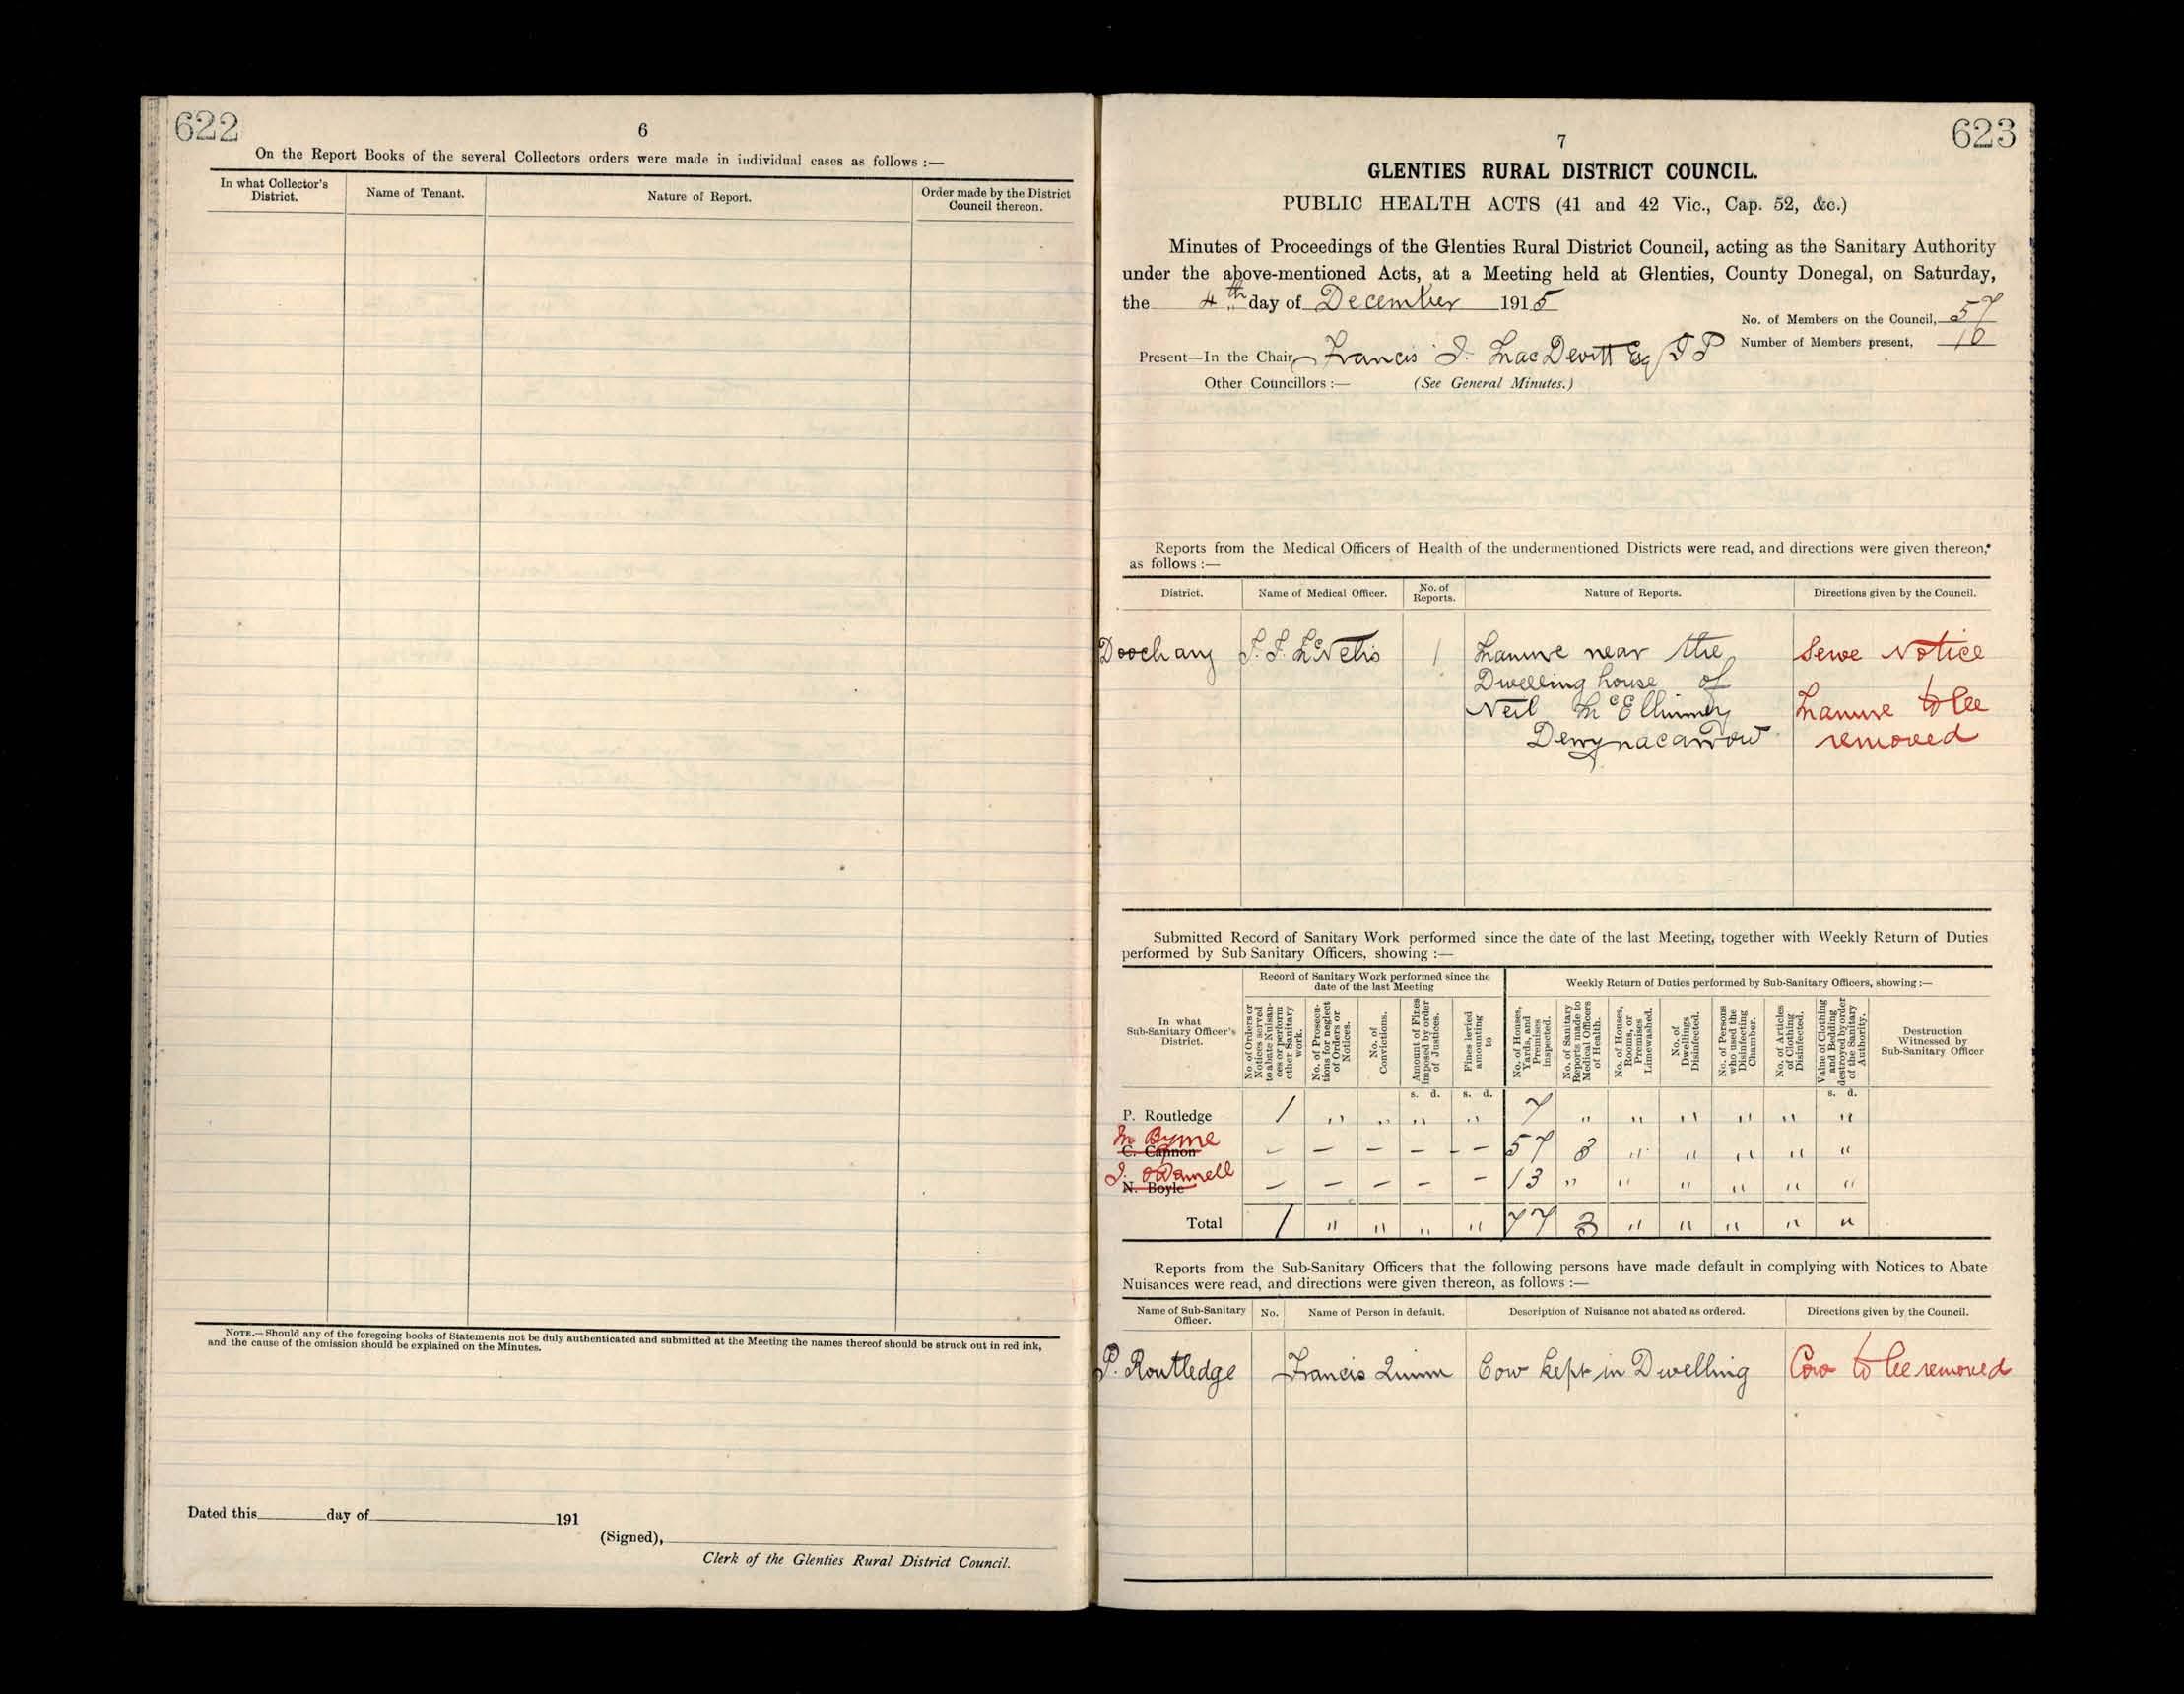 622
6
On the Report Books of the several Collectors orders were made in individual cases as follows :—
In what Collector's District.
Name of Tenant.
Nature of Report.
Order made by the District Council thereon.
NOTE.—Should any of the foregoing books of Statements not be duly authenticated and submitted at the Meeting the names thereof should be struck out in red ink,
and the cause of the omission should be explained on the Minutes.
Dated this day of 191
(Signed),
Clerk of the Glenties Rural District Council.
623
7
GLENTIES RURAL DISTRICT COUNCIL.
PUBLIC HEALTH ACTS (41 and 42 Vic., Cap. 52, &c.)
Minutes of Proceedings of the Glenties Rural District Council, acting as the Sanitary Authority
under the above-mentioned Acts, at a Meeting held at Glenties, County Donegal, on Saturday,
the 4th day of December 1915
No. of Members on the Council, 57
Present—In the Chair Francis J. MacDevitt Esq J P
Number of Members present, 10
Other Councillors :— (See General Minutes.)
Reports from the Medical Officers of Health of the undermentioned Districts were read, and directions were given thereon,*
as follows :—
District.
Name of Medical Officer.
No. of Reports.
Nature of Reports.
Directions given by the Council.
Doochary
1
Manure near the
Dwelling house of
Neil
Derrynacarrow
Serve Notice
Manure to be
removed
Submitted Record of Sanitary Work performed since the date of the last Meeting, together with Weekly Return of Duties
performed by Sub Sanitary Officers, showing :—
In what Sub-Sanitary Officer's District.
Record of Sanitary Work performed since the date of the last Meeting
Weekly Return of Duties performed by Sub-Sanitary Officers, showing :—
No. of Orders or Notices served to abate Nuisances or perform other Sanitary work.
No. of Prosecutions for neglect of Orders or Notices.
No. of Convictions.
Amount of Fines imposed by order of Justices.
Fines levied amounting to
No. of Houses, Yards, and Premises inspected.
No. of Sanitary Reports made to Medical Officers of Health.
No. of Houses, Rooms, or Premises Limewashed.
No. of Dwellings Disinfected.
No. of Persons who used the Disinfecting Chamber.
No. of Articles of Clothing Disinfected.
Value of Clothing and Bedding destroyed by order of the Sanitary Authority.
Destruction Witnessed by Sub-Sanitary Officer
s. d. s. d. s. d.
P. Routledge 1 " " " " 7 " " " " " "
M Byrne
C. Cannon — — — — — 57 3 " " " " "
J. O'Donnell
N. Boyle — — — — — 13 " " " " " "
Total 1 " " " " 77 3 " " " " "
Reports from the Sub-Sanitary Officers that the following persons have made default in complying with Notices to Abate
Nuisances were read, and directions were given thereon, as follows :—
Name of Sub-Sanitary Officer.
No.
Name of Person in default.
Description of Nuisance not abated as ordered.
Directions given by the Council.
P. Routledge Francis Quinn Cow kept in Dwelling Cow to be removed